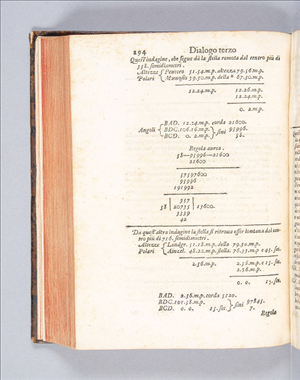 294 Dialogo terzo
Quest'indagine, che segue dà la stella remota dal centro più di
358. semidiametri.
Altezze { Peucero 51.54.m.p. altezza 79.56.m.p.
Polari { Munosio 39.30.m.p. della * 67.30.m.p.
12.24.m.p. 12.26.m.p.
12.24.m.p.
0. 2.m.p.
BAD. 12.24.m.p. corda 21600.
Angoli BDC. 106.16.m.p. } sini 95996.
BCD. 0. 2.m.p. } 58.
Regola aurea.
58—95996—21600
21600
57597600
95996
191992
357
58 | 20735 | 13600.
3339
42
Da quest'altra indagine la stella si ritrova esser lontana dal centro
tro più di 716. semidiametri.
Altezze { Landgr. 51.18.m.p. della 79.30.m.p.
Polari { Ainzel. 48.22.m.p. stella 76.33.m.p e 45. sec.
2.56.m.p. 2.56.m.p. e 15. sec.
2.56.m.p.
0. 0. 15. sec.
BAD. 2.56.m.p. corda 5120.
BDC. 101.58.m.p. } sini 97845.
BCD. 0. 0. 15. sec. } 7.
Regola